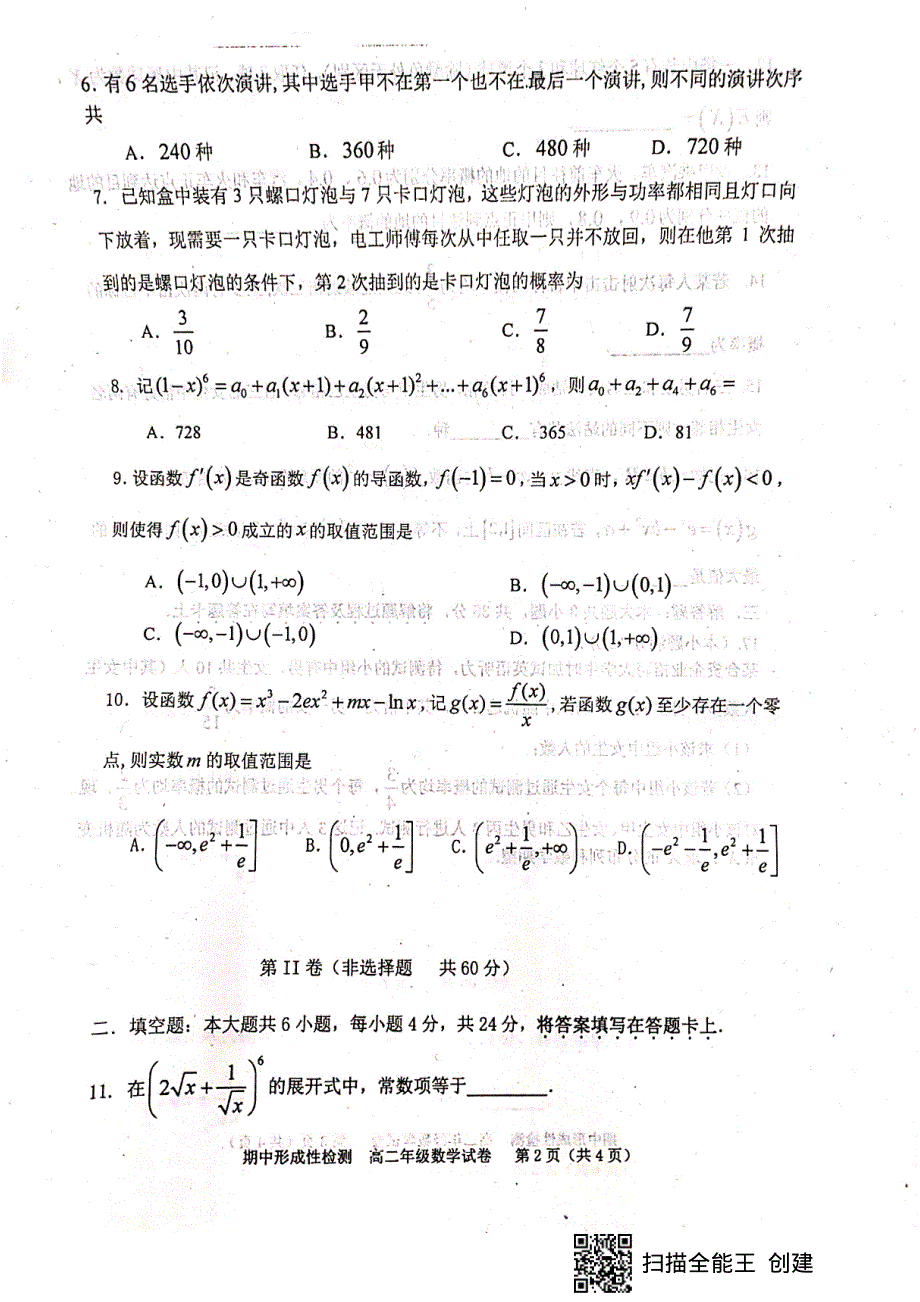 6. 有6名选手依次演讲,其中选手甲不在第一个也不在最后一个演讲,则不同的演讲次序
共
A. 240种 B. 360种 C. 480种 D. 720种
7. 已知盒中装有3只螺口灯泡与7只卡口灯泡，这些灯泡的外形与功率都相同且灯口向
下放着，现需要一只卡口灯泡，电工师傅每次从中任取一只并不放回，则在他第 1 次抽
到的是螺口灯泡的条件下，第2次抽到的是卡口灯泡的概率为
A. 3/10 B. 2/9 C. 7/8 D. 7/9
8. 记(1−x)⁶=a₀+a₁(x+1)+a₂(x+1)²+...+a₆(x+1)⁶，则a₀+a₂+a₄+a₆=
A. 728 B. 481 C. 365 D. 81
9. 设函数f′(x)是奇函数f(x)的导函数，f(−1)=0，当x>0时，xf′(x)−f(x)<0，
则使得f(x)>0成立的x的取值范围是
A. (−1,0)∪(1,+∞) B. (−∞,−1)∪(0,1)
C. (−∞,−1)∪(−1,0) D. (0,1)∪(1,+∞)
10. 设函数f(x)=x³−2ex²+mx−ln x,记g(x)=f(x)/x,若函数g(x)至少存在一个零
点,则实数m的取值范围是
A. (−∞,e²+1/e] B. (0,e²+1/e] C. (e²+1/e,+∞) D. (−e²−1/e,e²+1/e]
第 II 卷（非选择题 共60分）
二. 填空题：本大题共6小题，每小题4分，共24分，将答案填写在答题卡上.
11. 在(2√x+1/√x)⁶的展开式中，常数项等于________.
期中形成性检测 高二年级数学试卷 第2页（共4页）
扫描全能王 创建